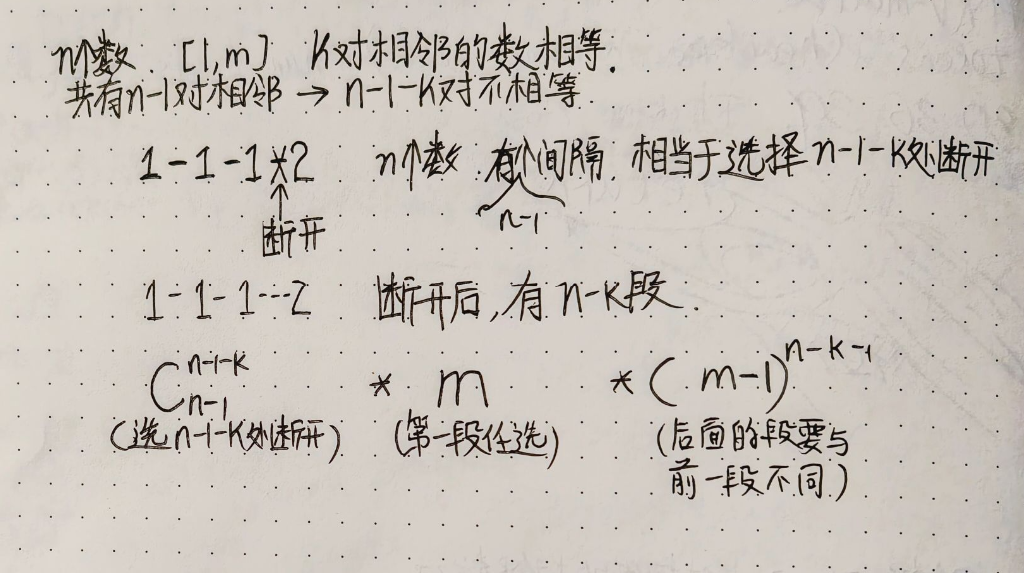 n个数. [1,m] K对相邻的数相等.
共有n-1对相邻 → n-1-K对不相等
1-1-1×2 n个数 有个间隔, 相当于选择n-1-K处断开
n-1
断开
1-1-1…2 断开后,有n-K段.
C_{n-1}^{n-1-K} * m * (m-1)^{n-K-1}
(选n-1-K处断开) (第一段任选) (后面的段要与
前一段不同)